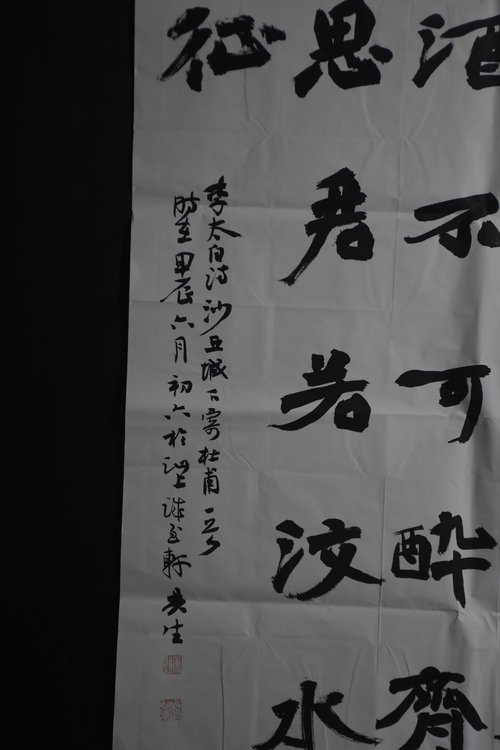 酒不可酔齊
思君若汶水
征
李太白诗沙丘城下寄杜甫一首
时在甲辰六月初六於泗上轩生